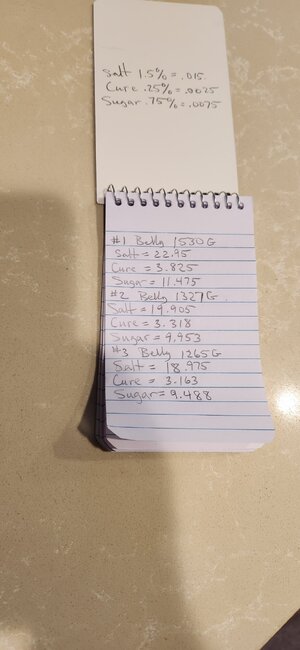 Salt 1.5% = .015
Cure .25% = .0025
Sugar .75% = .0075
#1 Belly 1530G
Salt = 22.95
Cure = 3.825
Sugar = 11.475
#2 Belly 1327G
Salt = 19.905
Cure = 3.318
Sugar = 9.953
#3 Belly 1265G
Salt = 18.975
Cure = 3.163
Sugar = 9.488